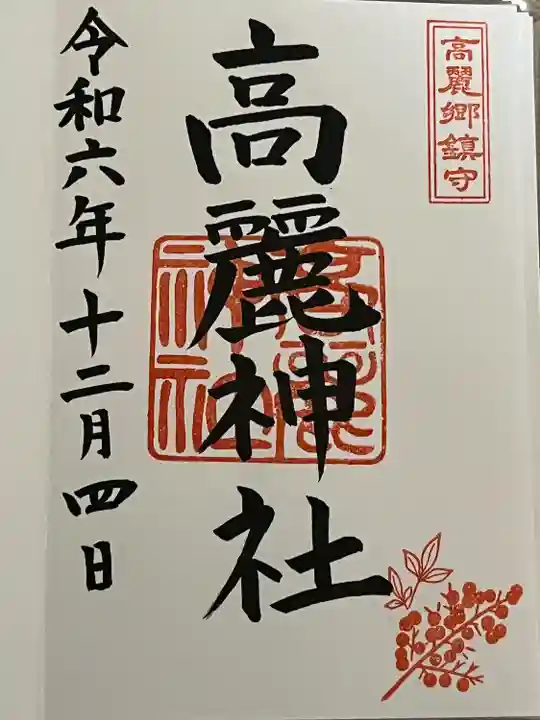 高麗郷鎮守
高麗神社
令和六年十二月四日